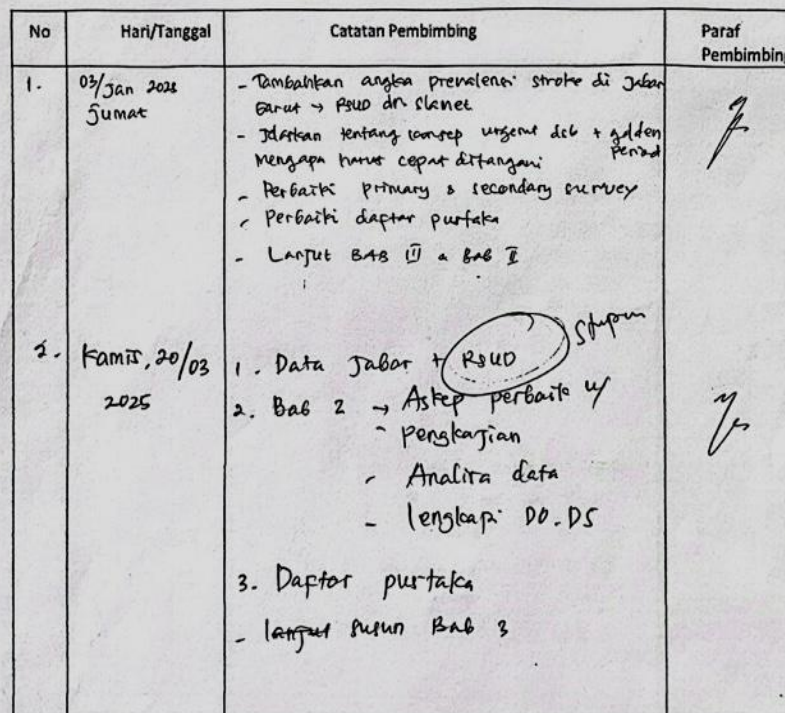 No Hari/Tanggal Catatan Pembimbing Paraf Pembimbing
1. 03/Jan 2025 Jumat
- Tambahkan angka prevalensi stroke di Jabar
Garut → RSUD dr. Slamet
- Jelaskan tentang konsep urgent dsb + golden period
mengapa harus cepat ditangani
- Perbaiki primary & secondary survey
- Perbaiki daftar pustaka
- Lanjut BAB III & Bab II
2. Kamis, 20/03 2025
1. Data Jabar + RSUD
2. Bab 2 → Askep perbaiki u/
- pengkajian
- Analisa data
- lengkapi DO.DS
3. Daftar pustaka
- lanjut susun Bab 3